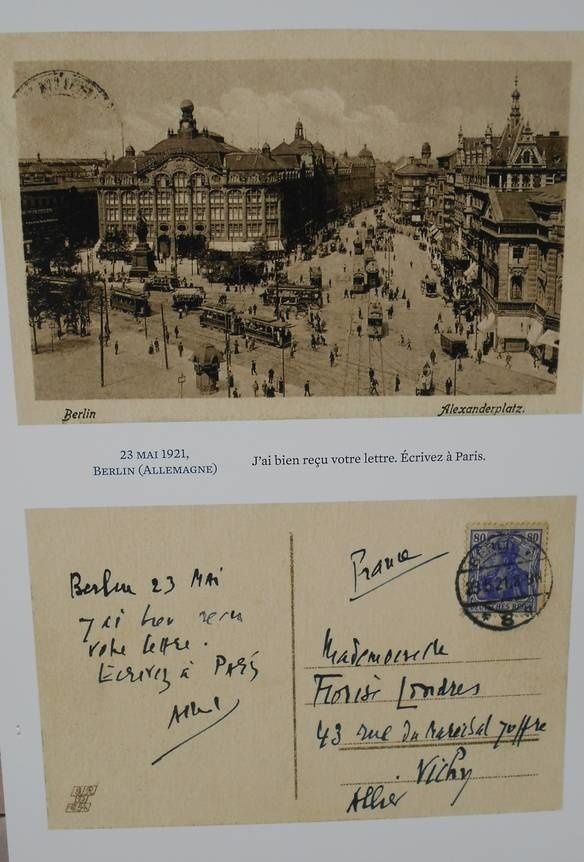 Berlin
Alexanderplatz.
23 MAI 1921,
BERLIN (ALLEMAGNE)
J'ai bien reçu votre lettre. Écrivez à Paris.
Berlin 23 Mai
J'ai bien reçu
votre lettre.
Écrivez à Paris
Albert
France
80 80
DEUTSCHES REICH
BERLIN
23.5.21.
8
Mademoiselle
Florise Londres
43 rue du Maréchal Joffre
Vichy
Allier